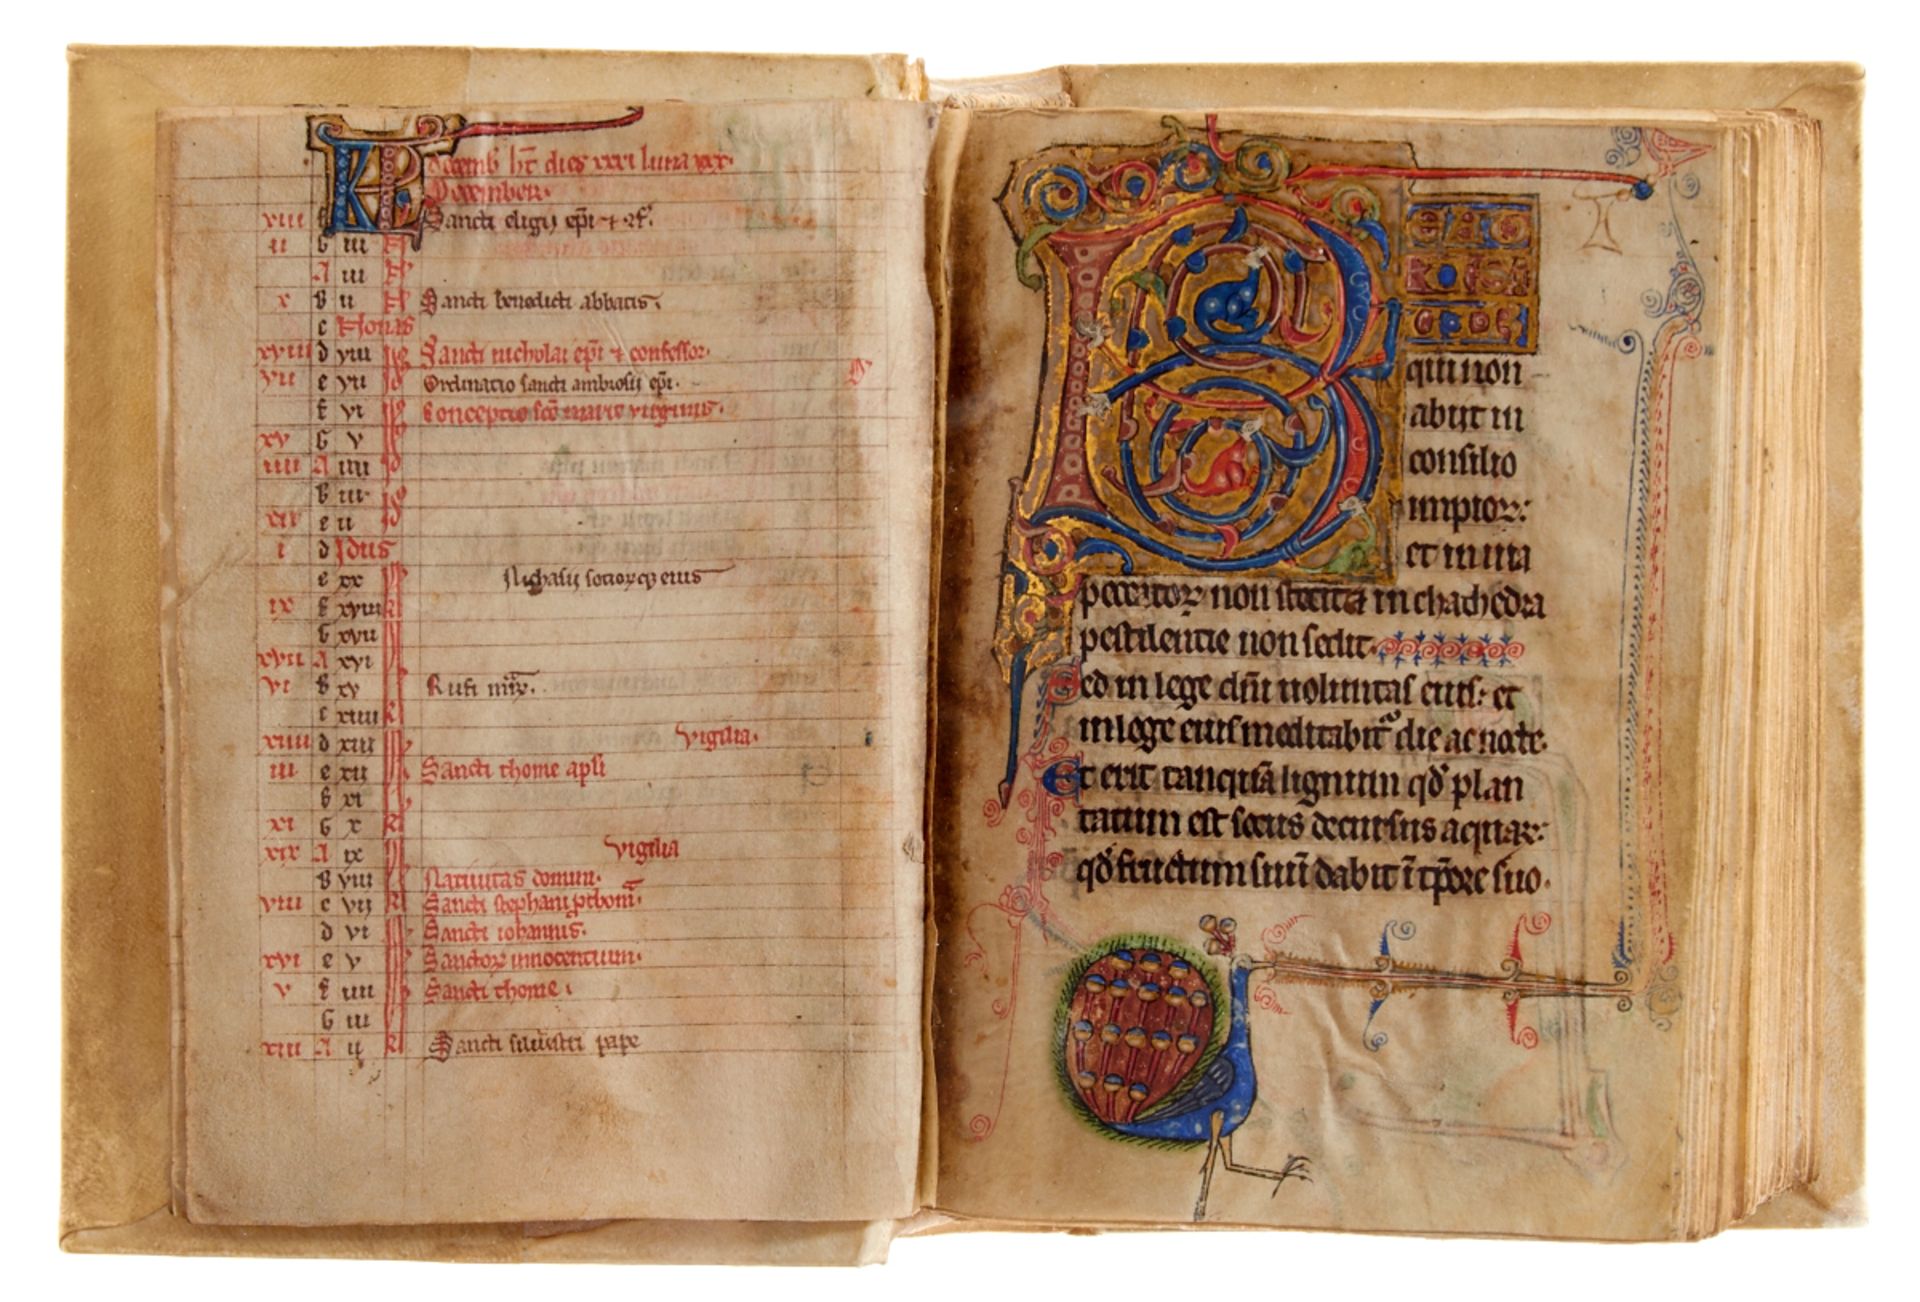 KL Decemb hт dies xxxi luna xxx.
December.
xviii f Sancti eligij ep̄i ⁊ ɔf̄.
ii G iiii N
A iii N
x B ii N Sancti benedicti abbatis.
c Nonas
xviii d viii id Sancti nicholai ep̄i ⁊ confessor.
vii e vii id Ordinatio sancti ambrosii ep̄i.
f vi id Conceptio scē marie virginis.
xv G v id
iiii A iiii id
B iii id
xii c ii id
i d Idus
e xix kl Nichasij socioꝝqꝫ eius
ix f xviii kl
G xvii kl
xvii A xvi kl
vi B xv kl Rufi mr̄.
c xiiii kl
xiiii d xiii kl Vigilia.
iii e xii kl Sancti thome apl̄i
f xi kl
xi G x kl
xix A ix kl Vigilia
B viii kl Nativitas domini.
viii c vij kl Sancti stephani ꝓthom̄.
d vi kl Sancti iohannis.
xvi e v kl Sanctoꝝ innocentium.
v f iiii kl Sancti thome.
G iii kl
xiii A ij kl Sancti silvestri pape
BEATUS
UIR
qui non
abiit in
consilio
impioꝝ:
et in uia
peccatoꝝ non stetit ⁊ in chathedra
pestilentie non sedit.
Sed in lege dn̄i uoluntas eius: et
in lege eius meditabit᷑ die ac nocte.
Et erit tanquā lignum qd̓ plan
tatum est secus decursus aquaꝝ:
qd̓ fructum suū dabit ī tp̄ore suo.